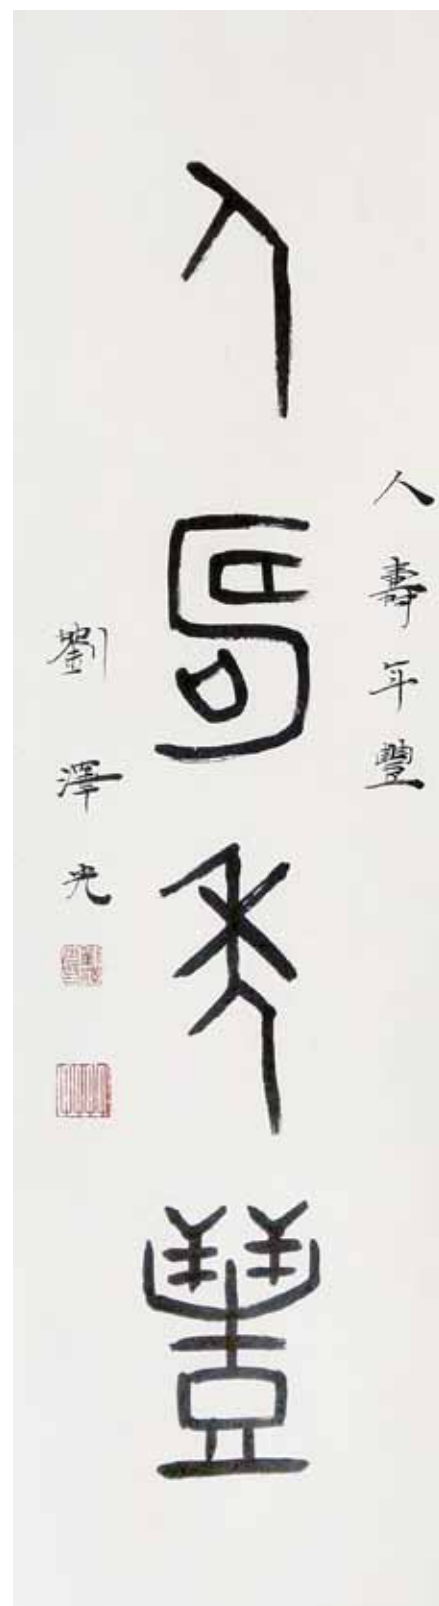 人壽年豐
人壽年豐
劉澤光